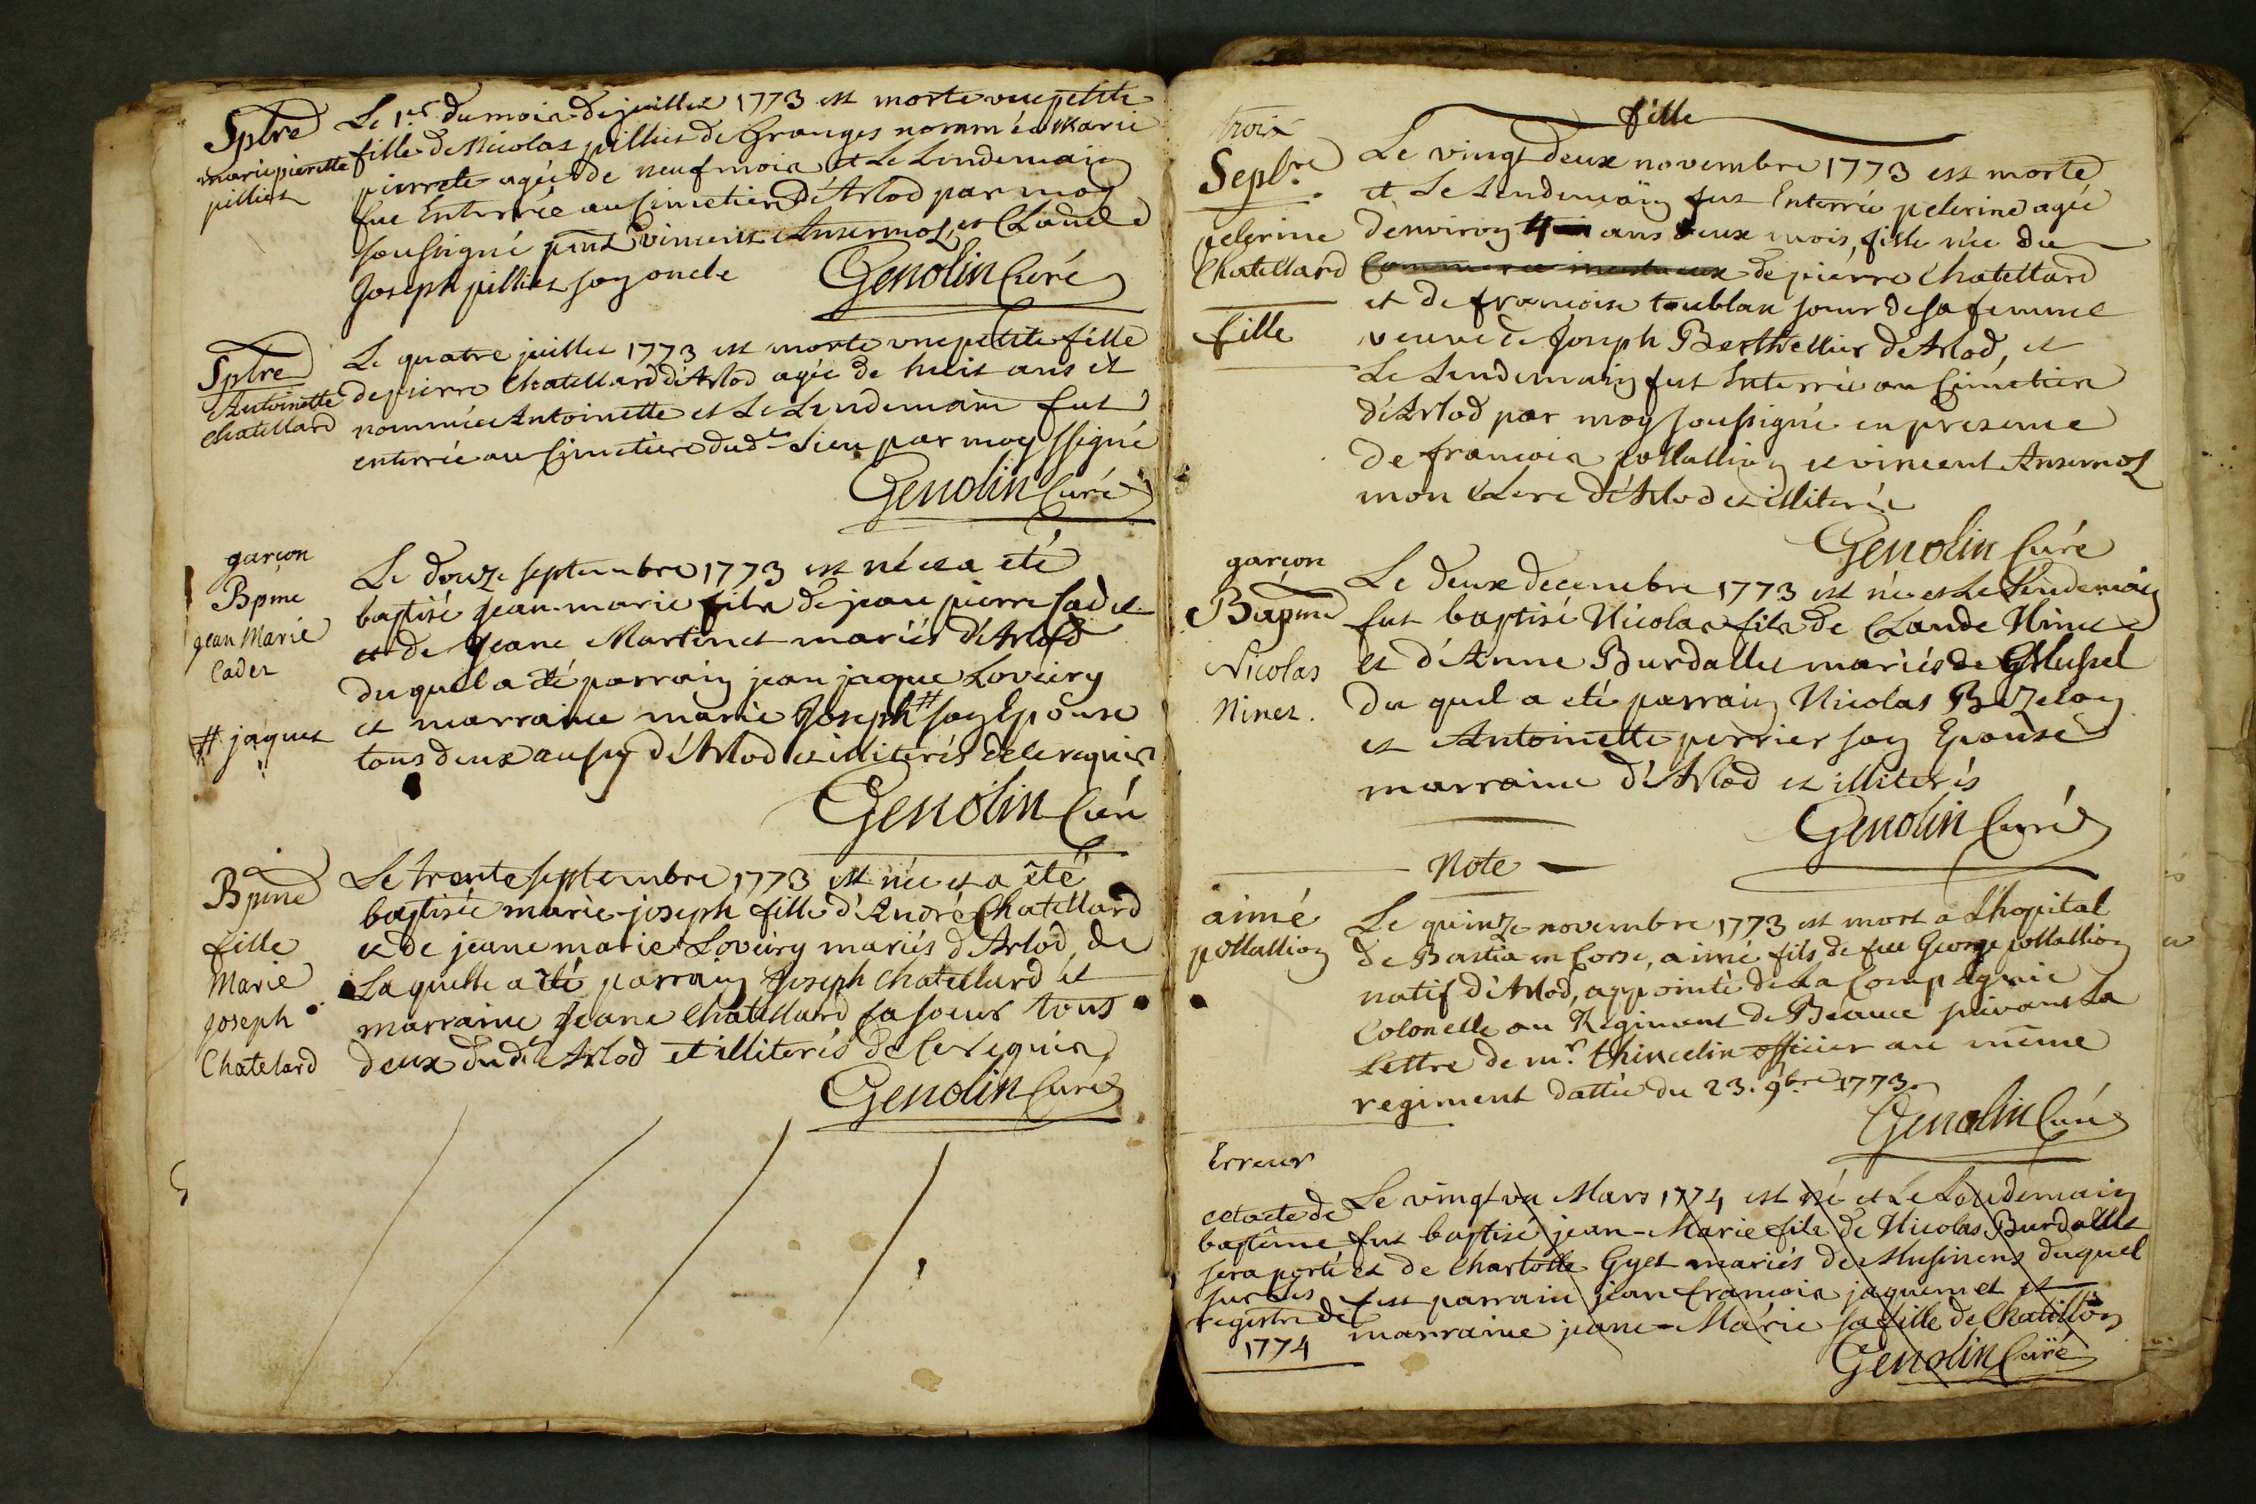 Sptre
marie pierette
pilliet
Le 1er du mois de juillet 1773 est morte une petite
fille de Nicolas pilliet de Granges nommée Marie
pierrete agée de neuf mois et Le Lendemain
fut Enterrée au Cimetiere d'Arlod par moy
soussigné pnts vincent Ansermoz et Claude
Joseph pilliet son oncle
Genolin Curé
Sptre
Antoinette
chatellard
Le quatre juillet 1773 est morte une petite fille
de pierre Chatellard d'Arlod agée de huit ans et
nommée Antoinette et Le Lendemain fut
enterrée au Cimetiere dudt Lieu par moy ssigné
Genolin Curé
garçon
Bpme
jean Marie
Cadet
# jaquet
Le douze septembre 1773 est né et a eté
baptisé jean-marie fils de jean pierre Cadet
et de jeane Martinet mariés d'Arlod
du quel a été parrain jean jaque Loveiry
et marraine marie Joseph # son Epouse
tous deux aussy d'Arlod et illiterés de ce requis
Genolin Curé
Bpme
fille
Marie
joseph
Chatelard
Le trente septembre 1773 est née et a été
baptisée marie-joseph fille d'André Chatellard
et de jeane marie Loveiry mariés d'Arlod, de
Laquelle a été parrain Joseph chatellard et
marraine jeane Chatellard sa soeur tous
deux dudt Arlod et illiterés de Ce requis
Genolin Curé
fille
trois
Sepbre
pelerine
Chatellard
fille
Le vingt deux novembre 1773 est morte
et Le Lendemain fut Enterrée pelerine agée
d'environ ans deux mois, fille née du
de piérre Chatellard
et de francoise toublan soeur de sa femme
veuve de Joseph Berthellier d'Arlod, et
Le Lendemain fut Enterrée au Cimetiere
d'Arlod par moy soussigné en presence
de francois pollallion et vincent Ansermoz
mon Clerc d'Arlod et illiteré
Genolin Curé
garçon
Bapme
Nicolas
Ninet.
Le deux decembre 1773 est né et Le Lendemain
fut baptisé Nicolas fils de Claude Ninet
et d'Anne Burdallet mariés de Mussel
du quel a eté parrain Nicolas Bozelon
et Antoinette perrier son Epouse
marraine d'Arlod et illiterés
Genolin Curé
Note
aimé
pollallion
Le quinze novembre 1773 est mort a L'hopital
de Bastia en Corse, aimé fils de feu George pollallion
natif d'Arlod, appointé de La Compagnie
Colonelle au Régiment de Beauce suivant La
Lettre de mr. thincelin officier au même
regiment dattée du 23. 9bre 1773
Genolin Curé
Erreur
cet acte de
baptême
sera porté
sur Les
registre de
1774
Le vingt un Mars 1774 est né et Le Lendemain
fut baptisé jean-Marie fils de Nicolas Burdallet
et de Charlotte Gyet mariés de Musinens duquel
fut parrain jean francois jaquemet et
marraine jeane-Marie sa fille de Chatillon
Genolin Curé